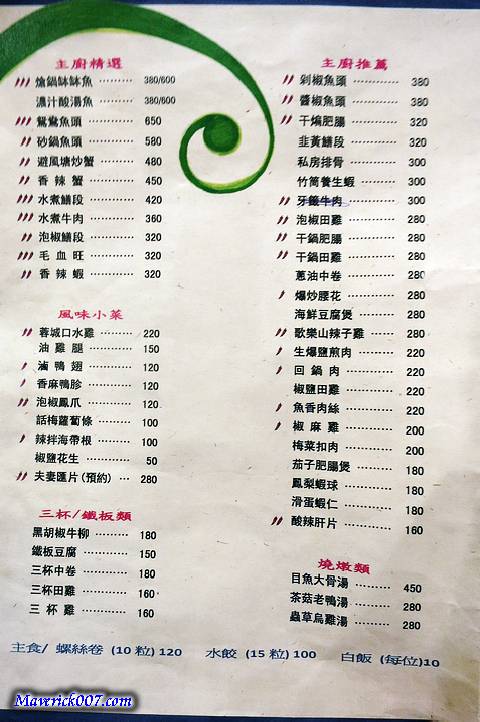 主廚精選
熗鍋缽缽魚 ………… 380/600
濃汁酸湯魚 ………… 380/600
鴛鴦魚頭 ………… 650
砂鍋魚頭 ………… 580
避風塘炒蟹 ………… 480
香辣蟹 ………… 450
水煮鱔段 ………… 420
水煮牛肉 ………… 360
泡椒鱔段 ………… 320
毛血旺 ………… 320
香辣蝦 ………… 320
風味小菜
蓉城口水雞 ………… 220
油雞腿 ………… 150
滷鴨翅 ………… 120
香麻鴨胗 ………… 120
泡椒鳳爪 ………… 120
話梅蘿蔔條 ………… 100
辣拌海帶根 ………… 100
椒鹽花生 ………… 50
夫妻匯片(預約) … 280
三杯/鐵板類
黑胡椒牛柳 ………… 180
鐵板豆腐 ………… 150
三杯中卷 ………… 180
三杯田雞 ………… 160
三杯雞 ………… 160
主廚推薦
剁椒魚頭 ………… 380
醬椒魚頭 ………… 380
干煸肥腸 ………… 320
韭黃鱔段 ………… 320
私房排骨 ………… 300
竹筒養生蝦 ………… 300
牙籤牛肉 ………… 300
泡椒田雞 ………… 280
干鍋肥腸 ………… 280
干鍋田雞 ………… 280
蔥油中卷 ………… 280
爆炒腰花 ………… 280
海鮮豆腐煲 ………… 280
歌樂山辣子雞 …… 280
生爆鹽煎肉 ………… 220
回鍋肉 ………… 220
椒鹽田雞 ………… 220
魚香肉絲 ………… 220
椒麻雞 ………… 200
梅菜扣肉 ………… 200
茄子肥腸煲 ………… 180
鳳梨蝦球 ………… 180
滑蛋蝦仁 ………… 180
酸辣肝片 ………… 160
燒燉類
目魚大骨湯 ………… 450
茶菇老鴨湯 ………… 280
蟲草烏雞湯 ………… 280
主食/ 螺絲卷 (10 粒) 120 水餃 (15 粒) 100 白飯 (每位)10
Maverick007.com